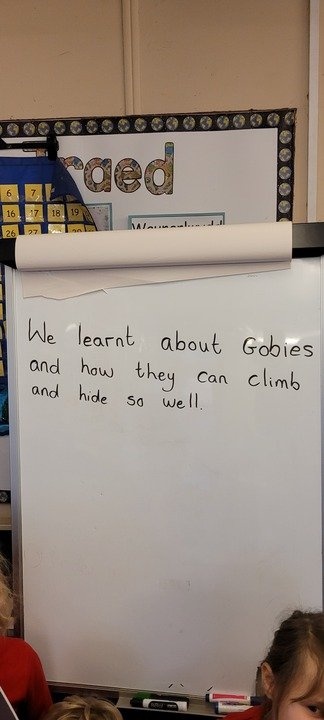 6 7
16 17 18 19
26 27
We learnt about Gobies
and how they can climb
and hide so well.